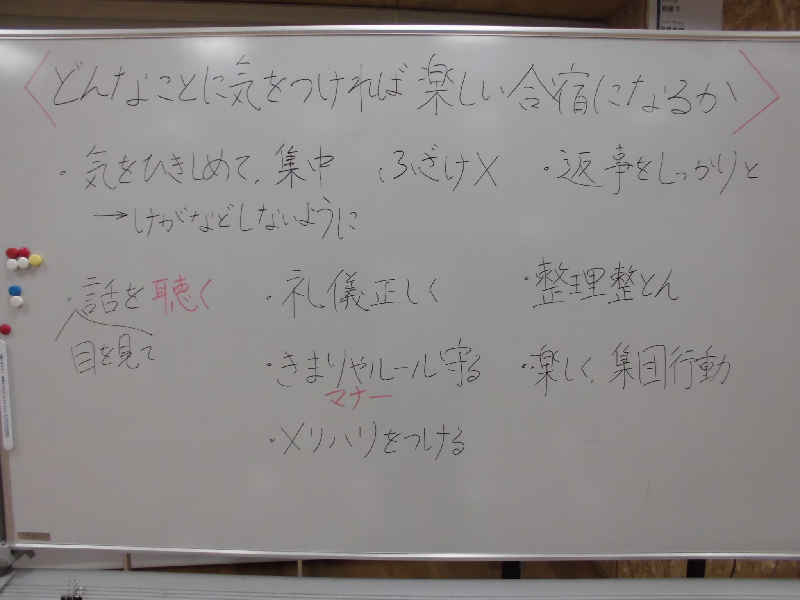 〈どんなことに気をつければ楽しい合宿になるか〉
・気をひきしめて、集中 ・ふざけ× ・返事をしっかりと
→けがなどしないように
・話を聴く ・礼儀正しく ・整理整とん
目を見て
・きまりやルール守る ・楽しく、集団行動
マナー
・メリハリをつける